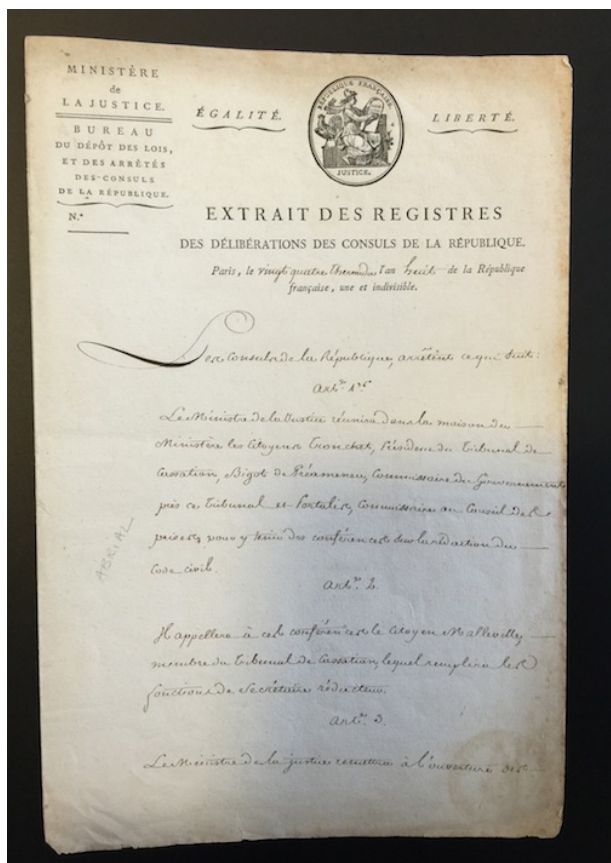 MINISTÈRE
de
LA JUSTICE.
BUREAU
DU DÉPÔT DES LOIS,
ET DES ARRÊTÉS
DES-CONSULS
DE LA RÉPUBLIQUE.
N.º
ÉGALITÉ.
RÉPUBLIQUE FRANÇAISE.
JUSTICE.
LIBERTÉ.
EXTRAIT DES REGISTRES
DES DÉLIBÉRATIONS DES CONSULS DE LA RÉPUBLIQUE.
Paris, le vingt quatre thermidor l'an huit de la République
française, une et indivisible.
Les Consuls de la République, arrêtent ce qui suit:
Art.er 1er
Le Ministre de la Justice réunira dans la maison du
Ministère les Citoyens Tronchet, Président du Tribunal de
Cassation, Bigot de Préameneu, Commissaire du Gouvernement
près ce Tribunal et Portalis, Commissaire au Conseil des
prises, pour y tenir des conférences sur la rédaction du
Code civil.
ABRIAL
Art. 2.
Il appellera à ces conférences le Citoyen Malleville,
membre du Tribunal de Cassation, lequel remplira les
fonctions de Secrétaire rédacteur.
Art. 3.
Le Ministre de la justice remettra à l'ouverture des